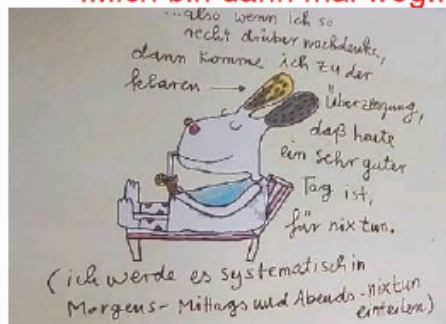 ...ich bin dann mal weg...
...also wenn ich so
recht drüber nachdenke,
dann komme ich zu der
klaren →
Überzeugung,
daß heute
ein sehr guter
Tag ist,
für nix tun.
(ich werde es systematisch in
Morgens- Mittags und Abends-nixtun
einteilen)